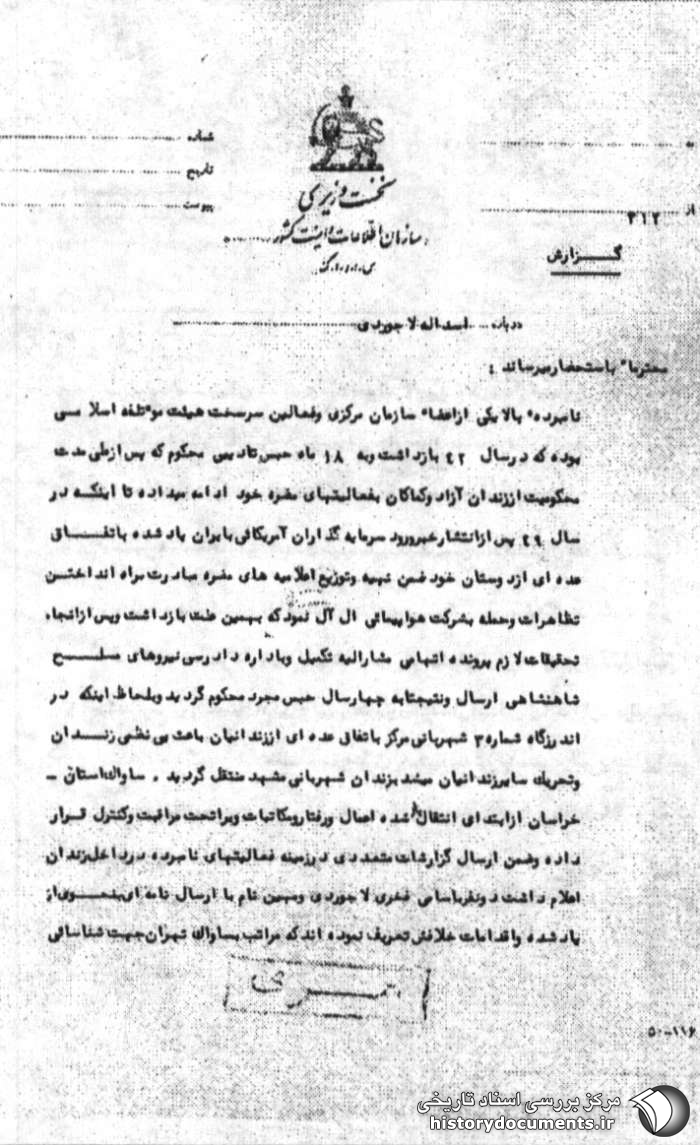 به
شماره
تاریخ
پیوست
از ۳۱۲
نخست وزیری
سازمان اطلاعات و امنیت کشور
س.ا.و.ا.ک
گزارش
درباره اسداله لاجوردی
محترما" باستحضار میرساند :
نامبرده" بالا یکی ازاعضا" سازمان مرکزی وفعالین سرسخت هیئت موتلفه اسلامی
بوده که درسال ۴۲ بازداشت وبه ۱۸ ماه حبس تادیبی محکوم که پس ازطی مدت
محکومیت اززندان آزاد وکماکان بفعالیتهای مضره خود ادامه میداده تا اینکه در
سال ۴۹ پس ازانتشارخبرورود سرمایه گذاران آمریکائی بایران یاد شده باتفاق
عده ای ازدوستان خود ضمن تهیه وتوزیع اعلامیه های مضره مبادرت براه انداختن
تظاهرات وحمله بشرکت هواپیمائی ال آل نمود که بهمین علت بازداشت وپس ازانجام
تحقیقات لازم پرونده اتهامی مشارالیه تکمیل وباداره دادرسی نیروهای مسلح
شاهنشاهی ارسال ونتیجتابه چهارسال حبس مجرد محکوم گردید وبلحاظ اینکه در
اندرزگاه شماره ۳ شهربانی مرکز باتفاق عده ای اززندانیان باعث بی نظمی زندان
وتحریک سایرزندانیان میشد بزندان شهربانی مشهد منتقل گردید . ساواک استان -
خراسان ازابتدای انتقال شده اعمال ورفتارومکاتبات ویراتحت مراقبت وکنترل قرار
داده وضمن ارسال گزارشات متعددی درزمینه فعالیتهای نامبرده درداخل زندان
اعلام داشت دونفرباسامی فخری لاجوردی وبهمین نام با ارسال نامه ای بنحوی از
یادشده واقدامات خلافش تعریف نموده اند که مراتب بساواک تهران جهت شناسائی
سری
۵۰-۱۱۶
مرکز بررسی اسناد تاریخی
historydocuments.ir